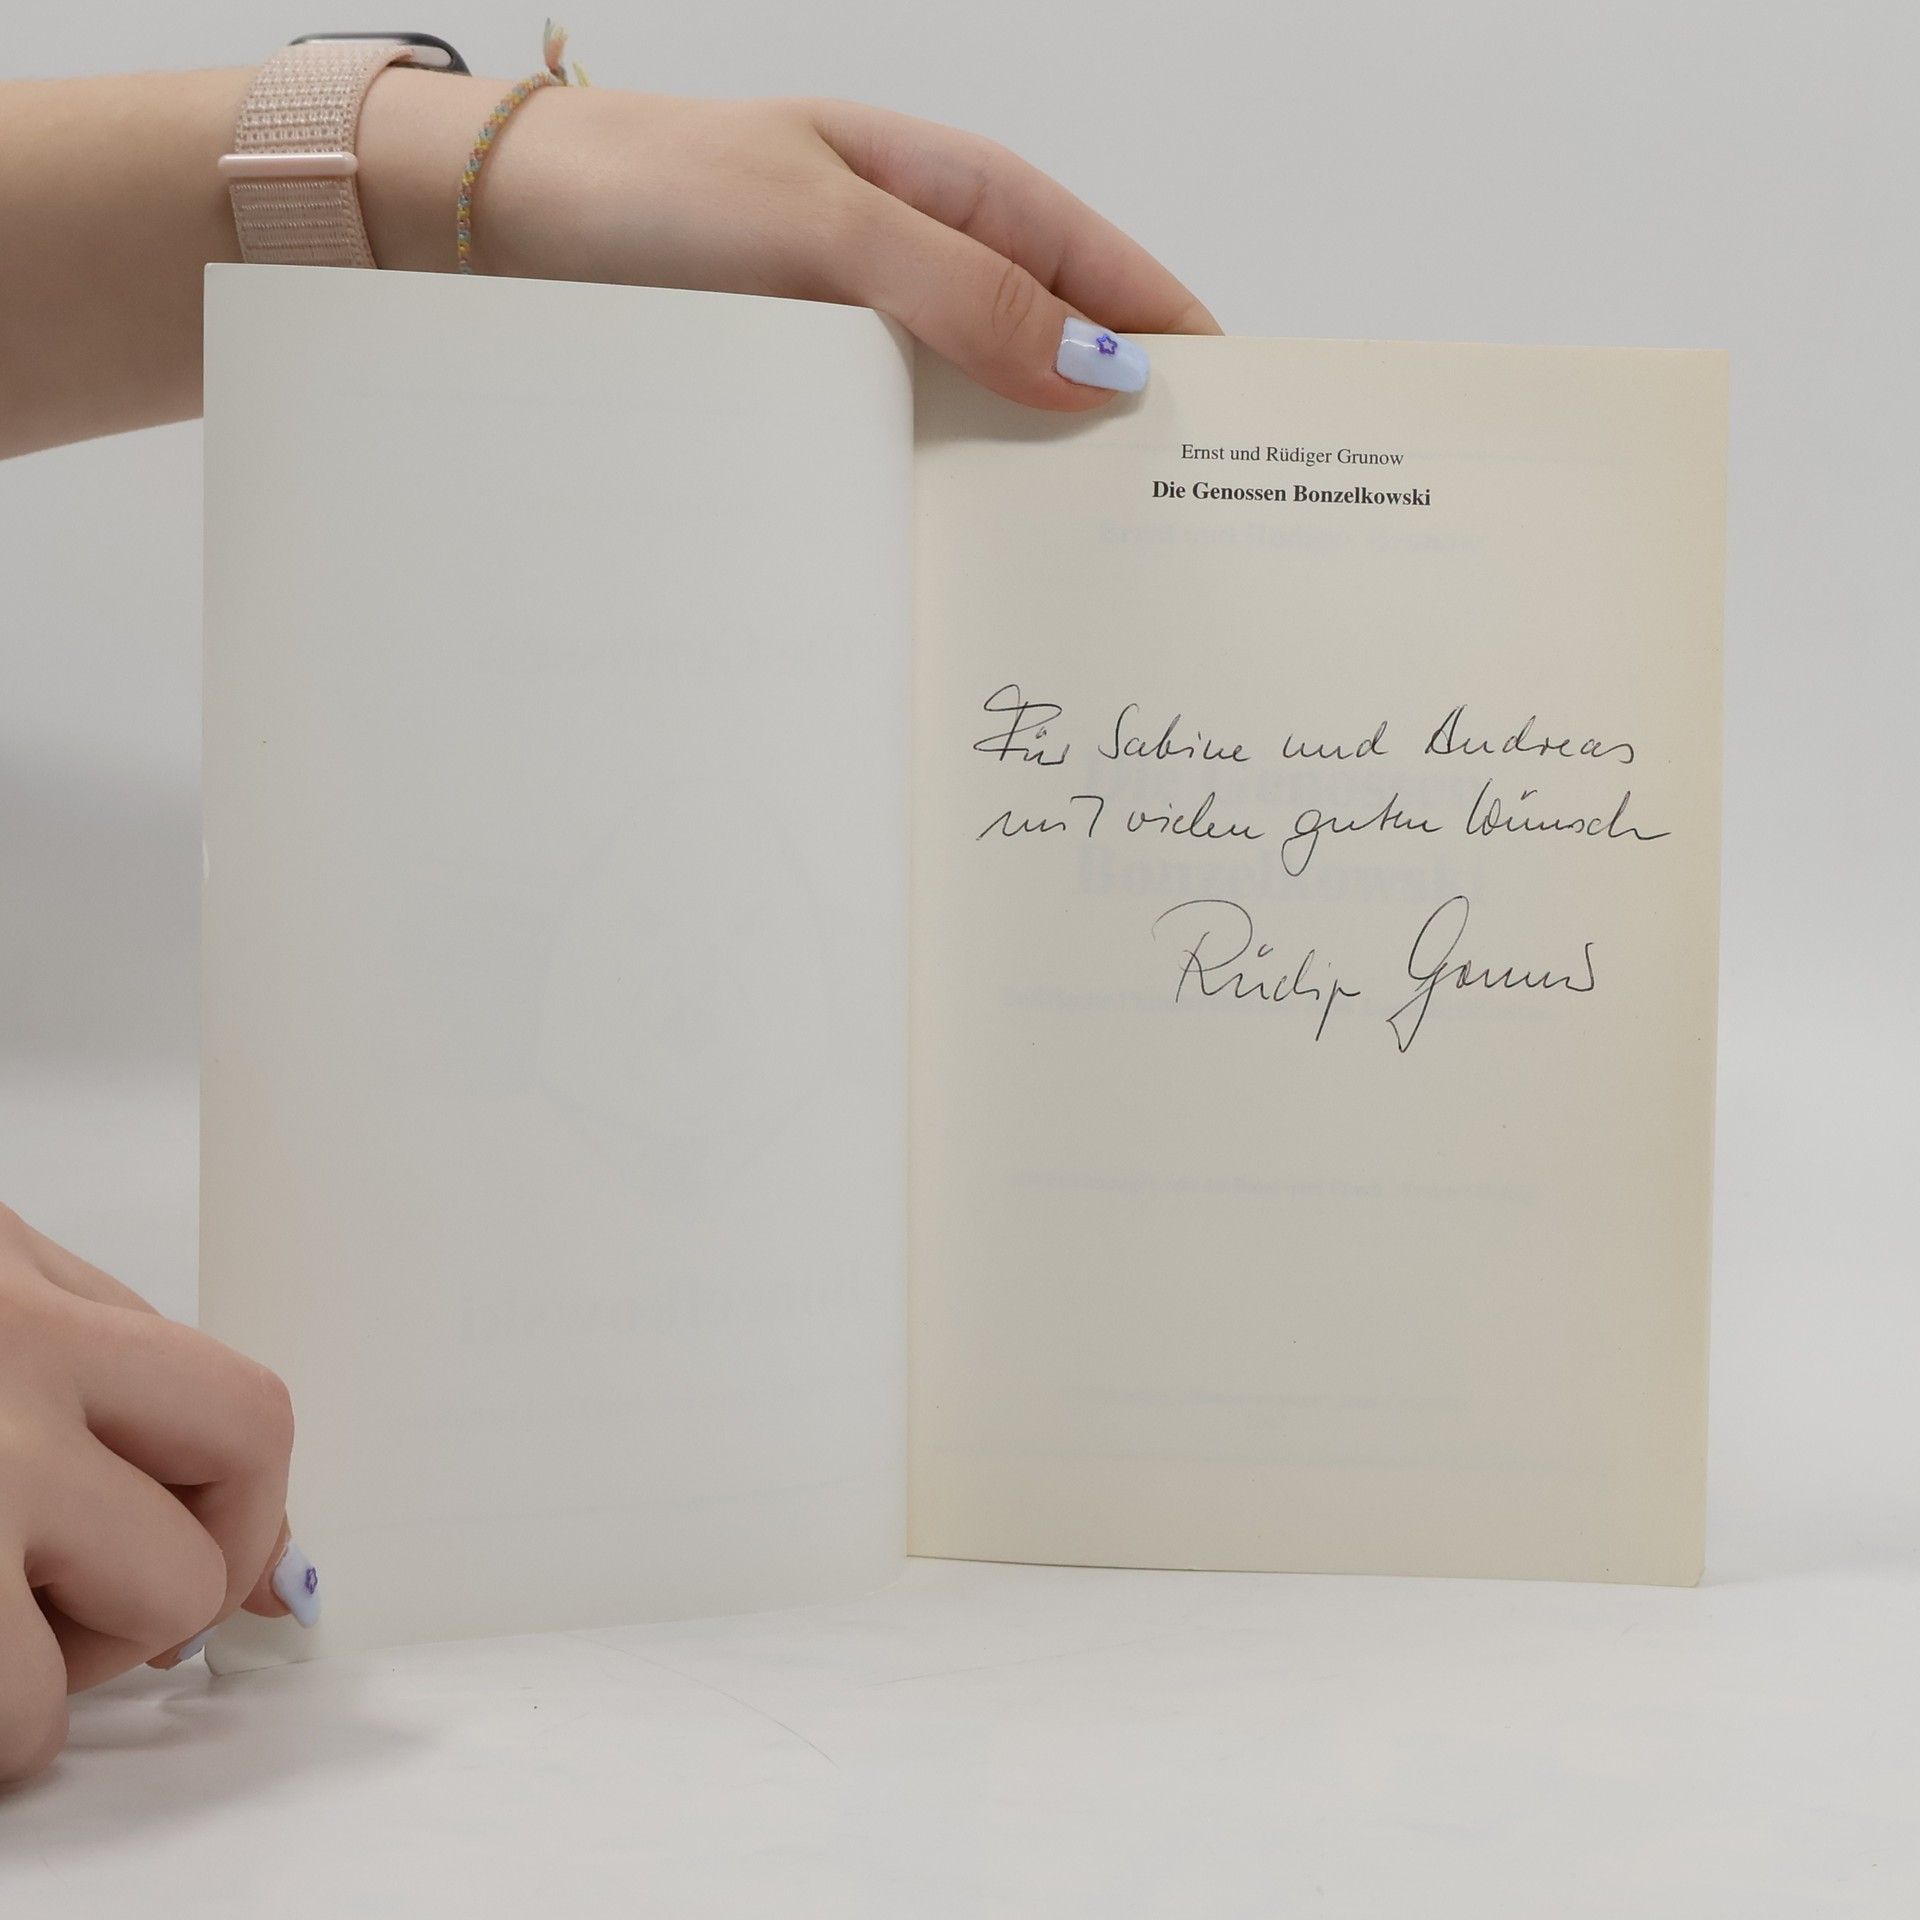 Ernst und Rüdiger Grunow
Die Genossen Bonzelkowski
Für Sabine und Andreas
mit vielen guten Wünschen
Rüdiger Grunow